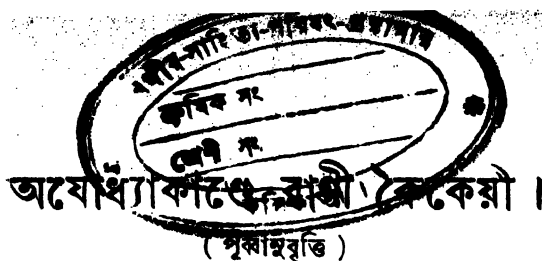 বঙ্গীয়-সাহিত্য-পরিষৎ-গ্রন্থাগার
ক্রমিক সং
শ্রেণী সং
অযোধ্যাকাণ্ডে রাজ্ঞী কৈকেয়ী ।
( পূর্ব্বানুবৃত্তি )